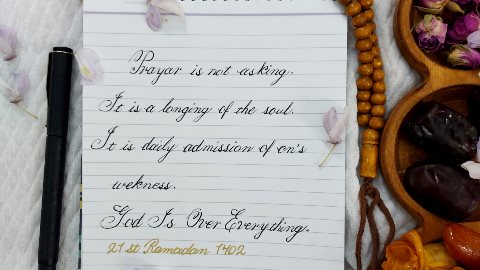 Prayar is not asking.
It is a longing of the soul.
It is daily admission of on's
wekness.
God Is Over Everything.
21 st Ramadan 1402